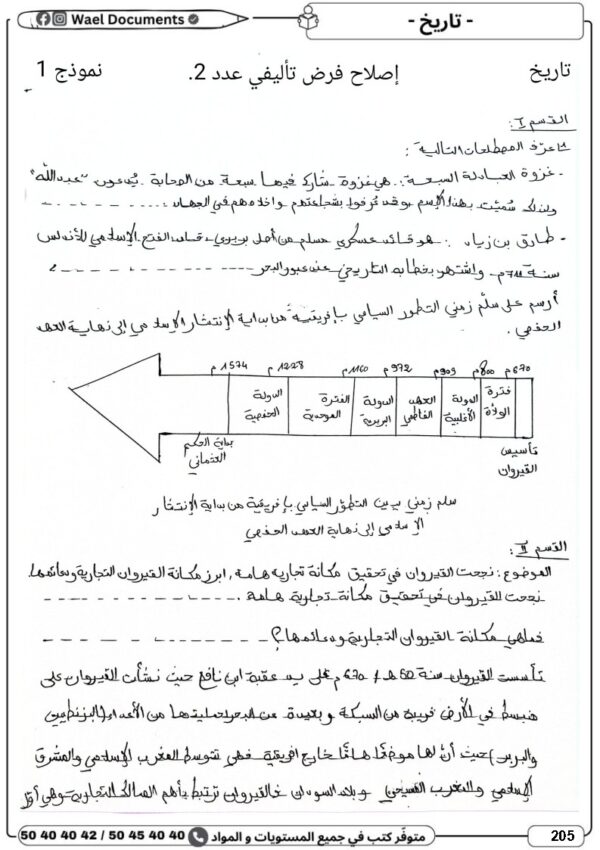 Wael Documents
- تاريخ -
تاريخ
إصلاح فرض تأليفي عدد 2.
نموذج 1
القسم I:
1/ عرّف المصطلحات التالية:
- غزوة العبادلة السبعة: هي غزوة شارك فيها سبعة من الصحابة يُدعون "عبد الله"
ولذلك سُميت بهذا الإسم وقد عُرفوا بشجاعتهم وإقدامهم في الجهاد
- طارق بن زياد: هو قائد عسكري مسلم من أصل بربري قاد الفتح الإسلامي للأندلس
سنة 711م. واشتهر بخطابه التاريخي عند عبور البحر
2 أرسم على سلّم زمني التطور السياسي بإفريقية من بداية الإنتشار الإسلامي إلى نهاية العهد
الحفصي.
670م 800م 909م 972م 1160م 1228م 1574م
فترة الولاة
الدولة الأغلبية
العهد الفاطمي
الدولة الزيرية
الفترة الموحدية
الدولة الحفصية
تأسيس القيروان
بداية الحكم العثماني
سلم زمني يبين التطور السياسي بإفريقية من بداية الإنتشار
الإسلامي إلى نهاية العهد الحفصي
القسم II:
الموضوع: نجحت القيروان في تحقيق مكانة تجارية هامة، ابرز مكانة القيروان التجارية ودعائمها.
نجحت القيروان في تحقيق مكانة تجارية هامة.
فماهي مكانة القيروان التجارية ودعائمها؟
تأسست القيروان سنة 50 هـ / 670م على يد عقبة ابن نافع حيث نشأت القيروان على
منبسط في الأرض قريبة من السبخة وبعيدة عن البحر لحمايتها من الأعداء (البيزنطيين
والبربر) حيث أن لها موقعًا هامًا خارج افريقية فهي تتوسط المغرب الإسلامي والمشرق
الإسلامي والمغرب وبلاد السودان فالقيروان ترتبط بأهم المسالك التجارية وهي أول
50 40 40 42 / 50 45 40 40
متوفّر كتب في جميع المستويات و المواد
205